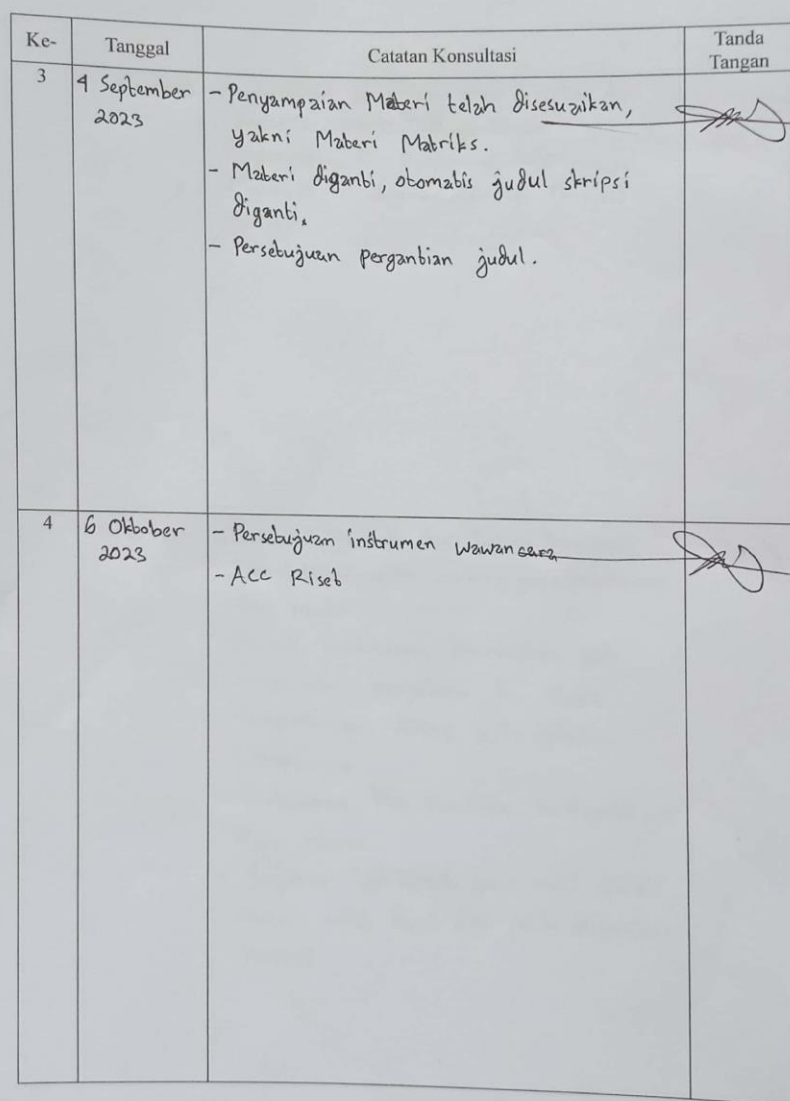 Ke-
Tanggal
Catatan Konsultasi
Tanda
Tangan
3
4 September
2023
- Penyampaian Materi telah disesuaikan,
yakni Materi Matriks.
- Materi diganti, otomatis judul skripsi
diganti.
- Persetujuan pergantian judul.
4
6 Oktober
2023
- Persetujuan instrumen wawancara
- Acc Riset